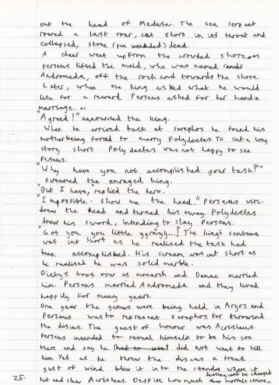 out the head of Medusa. The sea serpent
roared a last roar, cut short in its throat and
collapsed, stone (pun intended) dead.
A cheer went up from the crowded shore, as
persons lifted the maid, who was named
Andromeda, off the rock and towards the shore.
Later, when the king asked what he would
like for a reward Perseus asked for her hand in
marriage.
"Agreed!" announced the king.
When he arrived back at Seraphos he found his
mother being forced to marry Polydectes. To cut a long
story short Polydectes was not happy to see
Perseus.
"Why have you not accomplished your task?"
screamed the enraged king.
"But I have, replied the hero.
"Impossible. Show me the head." Perseus
drew the head and turned his away. Polydectes
drew his sword, intending to slay Perseus.
"Got you, you little The king's
was cut short as he realised the task had
been accomplished. His scream was cut short as
he realised he was solid marble.
Dictys took over as monarch and Danae married
him. Perseus married Andromeda and they lived
happily for many years.
One year the games were being held in Argos and
Perseus was to represent Seraphos for throwing
the discus. The guest of honour was Acrisius
Perseus intended to reveal himself to be his son
then and say he did not want to kill
him. Yet as he threw the discus a freak
gust of wind blew it into the stands where it
hit and slew Acrisius. Despite how much
25.